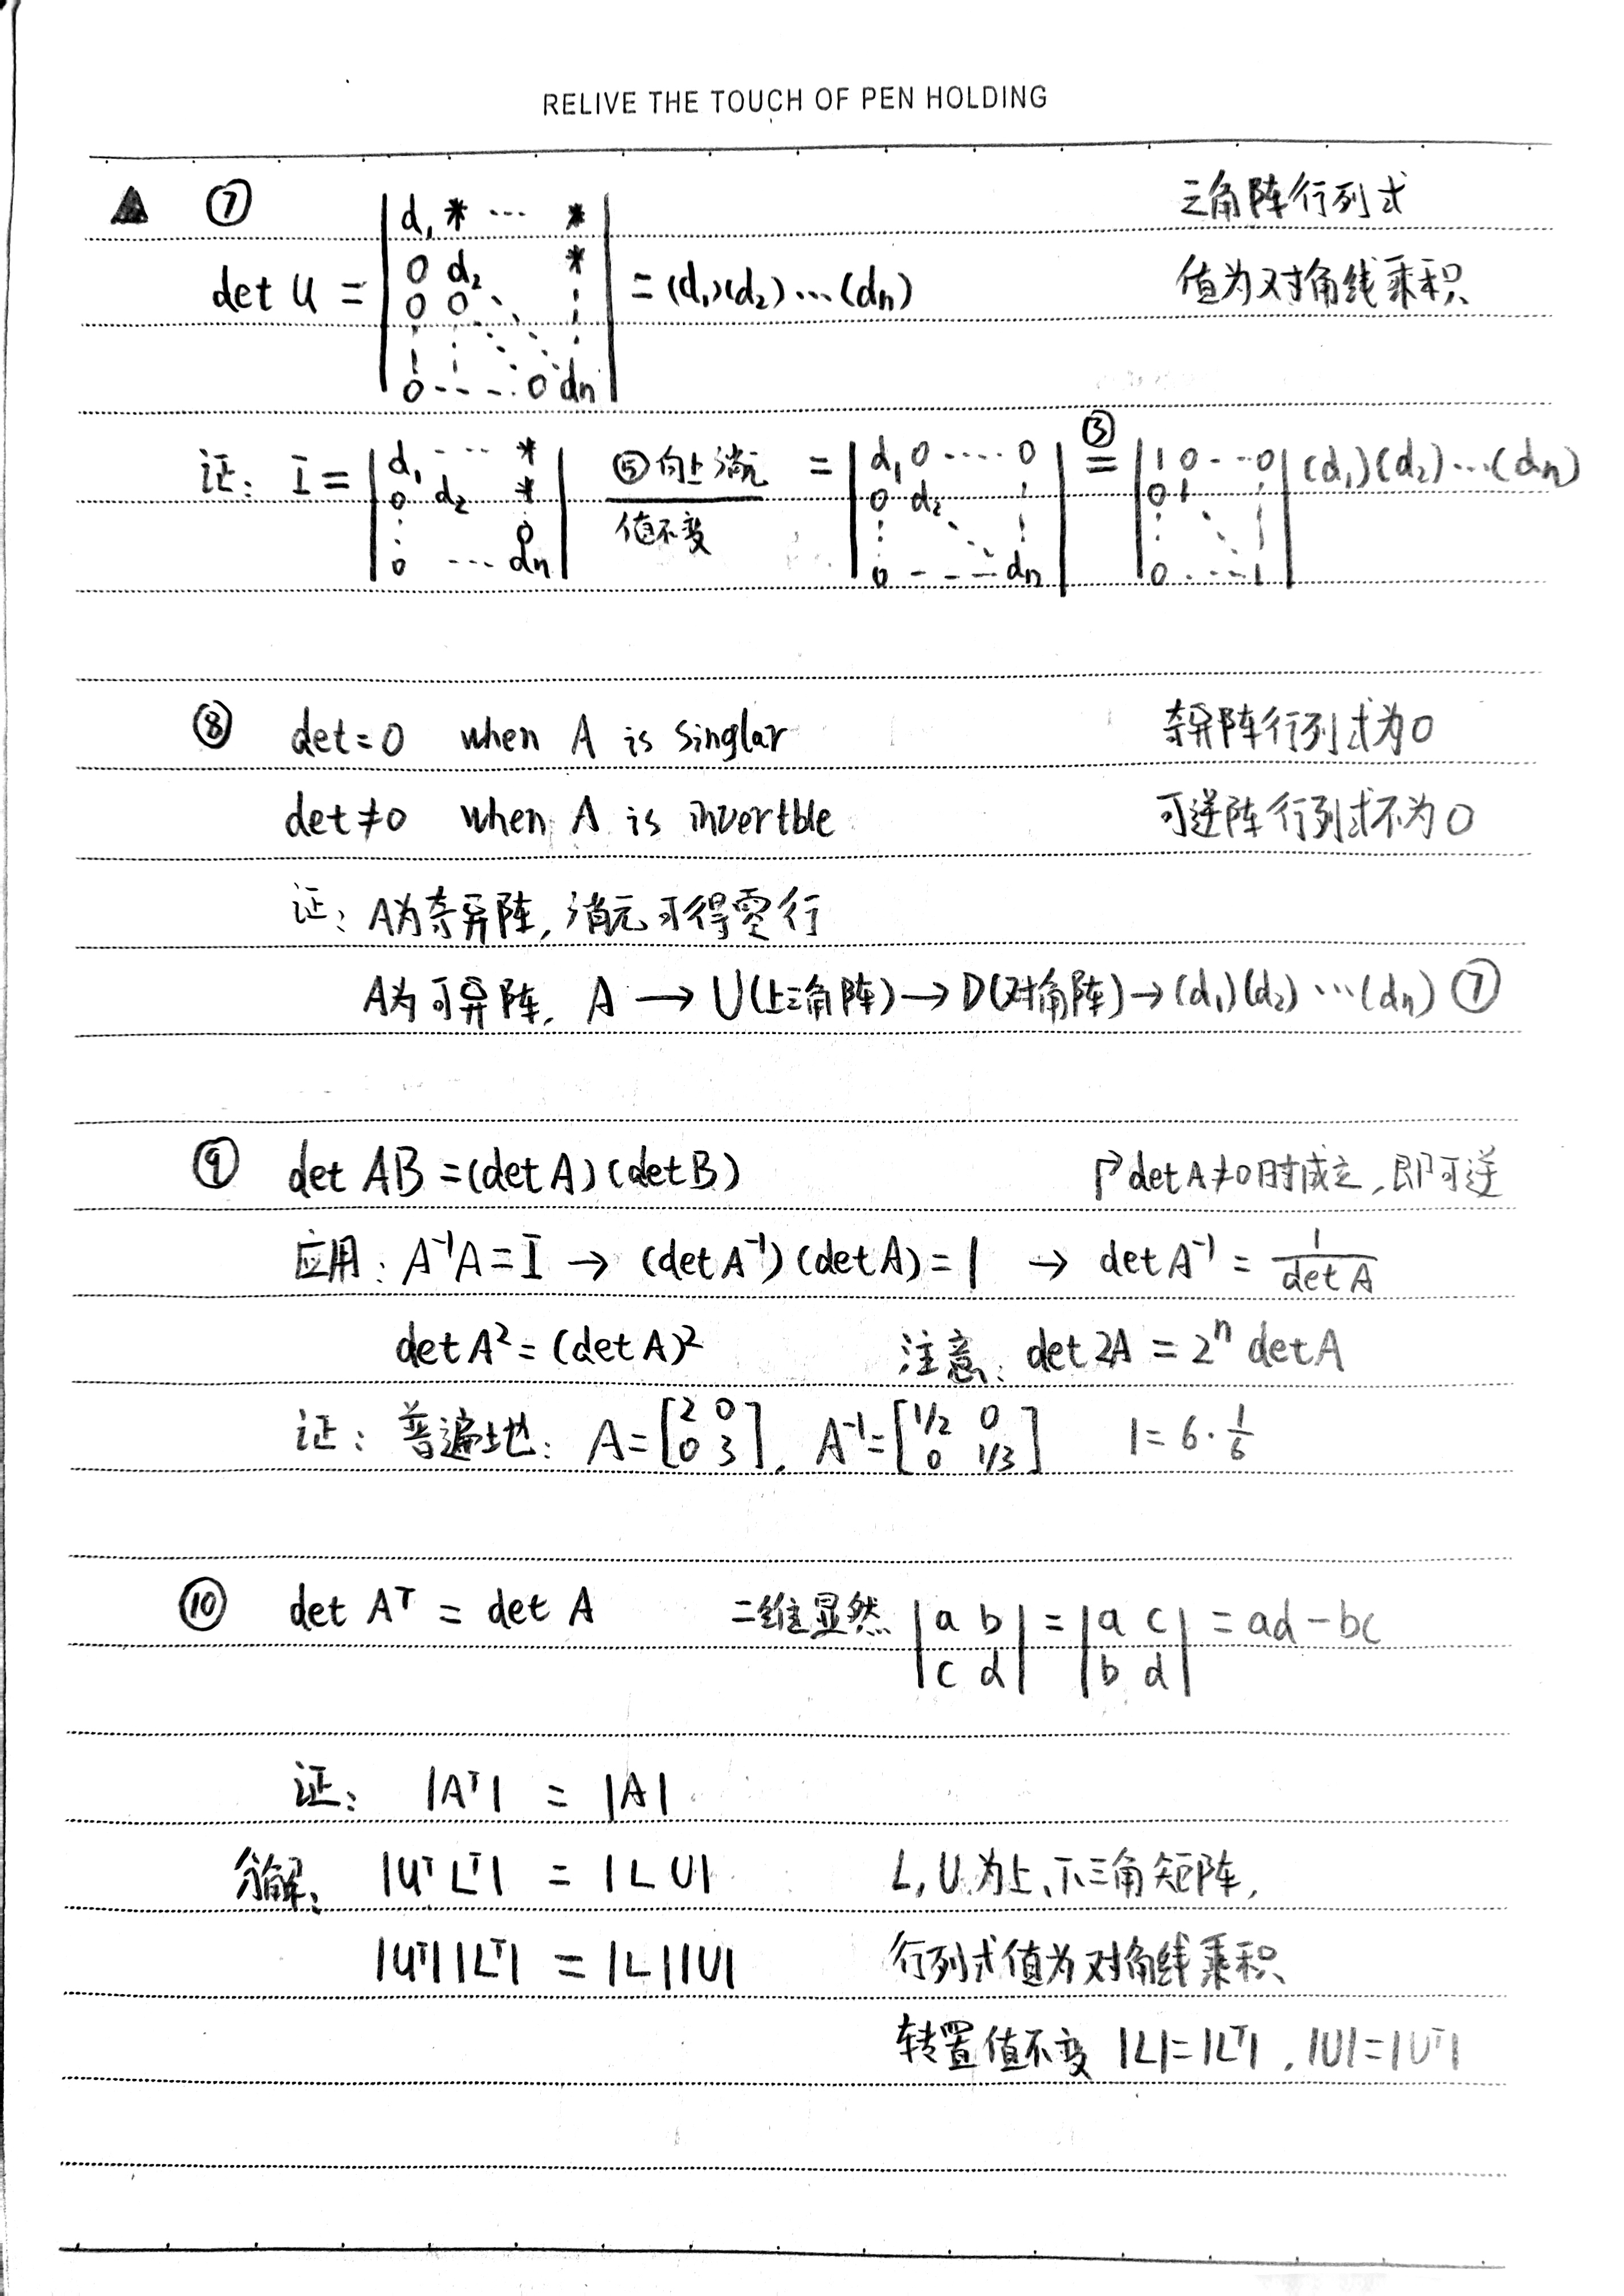 RELIVE THE TOUCH OF PEN HOLDING
▲ ⑦ 三角阵行列式
det U = | d₁ * ⋯ * ; 0 d₂ * ; 0 0 ⋱ ⋮ ; ⋮ ⋮ ⋱ ; 0 ⋯ 0 dn | = (d₁)(d₂)⋯(dn) 值为对角线乘积
证: I = | d₁ ⋯ * ; 0 d₂ * ; ⋮ 0 ; 0 ⋯ dn | ⑤向上消元 值不变 = | d₁ 0 ⋯ 0 ; 0 d₂ ⋮ ; ⋮ ⋱ ⋮ ; 0 ⋯ dn | ③= | 1 0 ⋯ 0 ; 0 1 ⋮ ; ⋮ ⋱ ⋮ ; 0 ⋯ 1 | (d₁)(d₂)⋯(dn)
⑧ det=0 when A is singlar 奇异阵行列式为0
det≠0 when A is invertble 可逆阵行列式不为0
证: A为奇异阵, 消元可得零行
A为可异阵, A → U(上三角阵) → D(对角阵) → (d₁)(d₂)⋯(dn) ⑦
⑨ det AB = (det A)(det B) ↱ det A≠0时成立, 即可逆
应用: A⁻¹A = I → (det A⁻¹)(det A) = 1 → det A⁻¹ = 1/det A
det A² = (det A)² 注意: det 2A = 2ⁿ det A
证: 普遍地: A = [2 0; 0 3], A⁻¹ = [1/2 0; 0 1/3] 1 = 6·1/6
⑩ det Aᵀ = det A 二维显然 | a b ; c d | = | a c ; b d | = ad-bc
证: |Aᵀ| = |A|
分解: |UᵀLᵀ| = |L U| L, U为上、下三角矩阵,
|Uᵀ||Lᵀ| = |L||U| 行列式值为对角线乘积
转置值不变 |L|=|Lᵀ|, |U|=|Uᵀ|